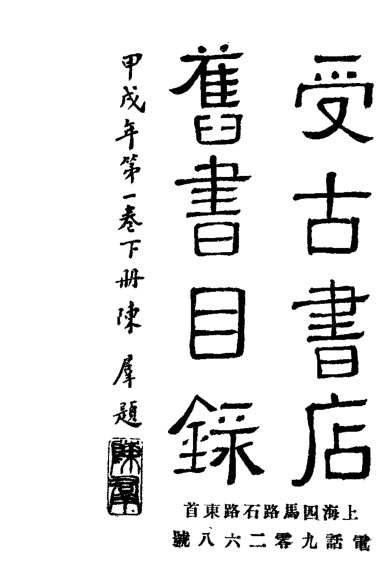 受古書店
舊書目錄
甲戌年第一卷下册陳羣題
陳羣
上海四馬路石路東首
電話九零二六八號